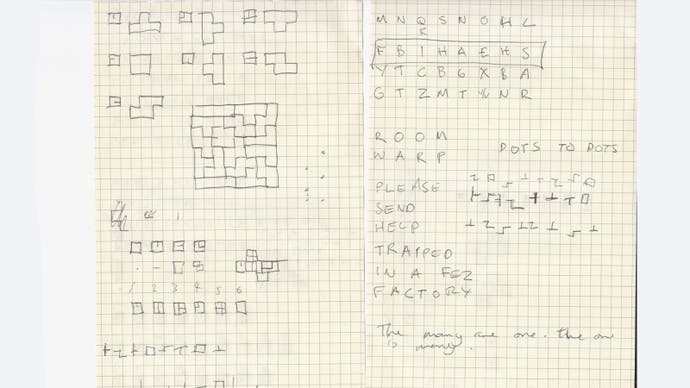 1 2 3 4 5 6
M N Q S N O H L
K
F B I H A E H S
Y T C B G X B A
G T Z M T % N R
ROOM
WARP
DOTS TO DOTS
PLEASE
SEND
HELP
TRAPPED
IN A FEZ
FACTORY
The many are one. The one
is many.